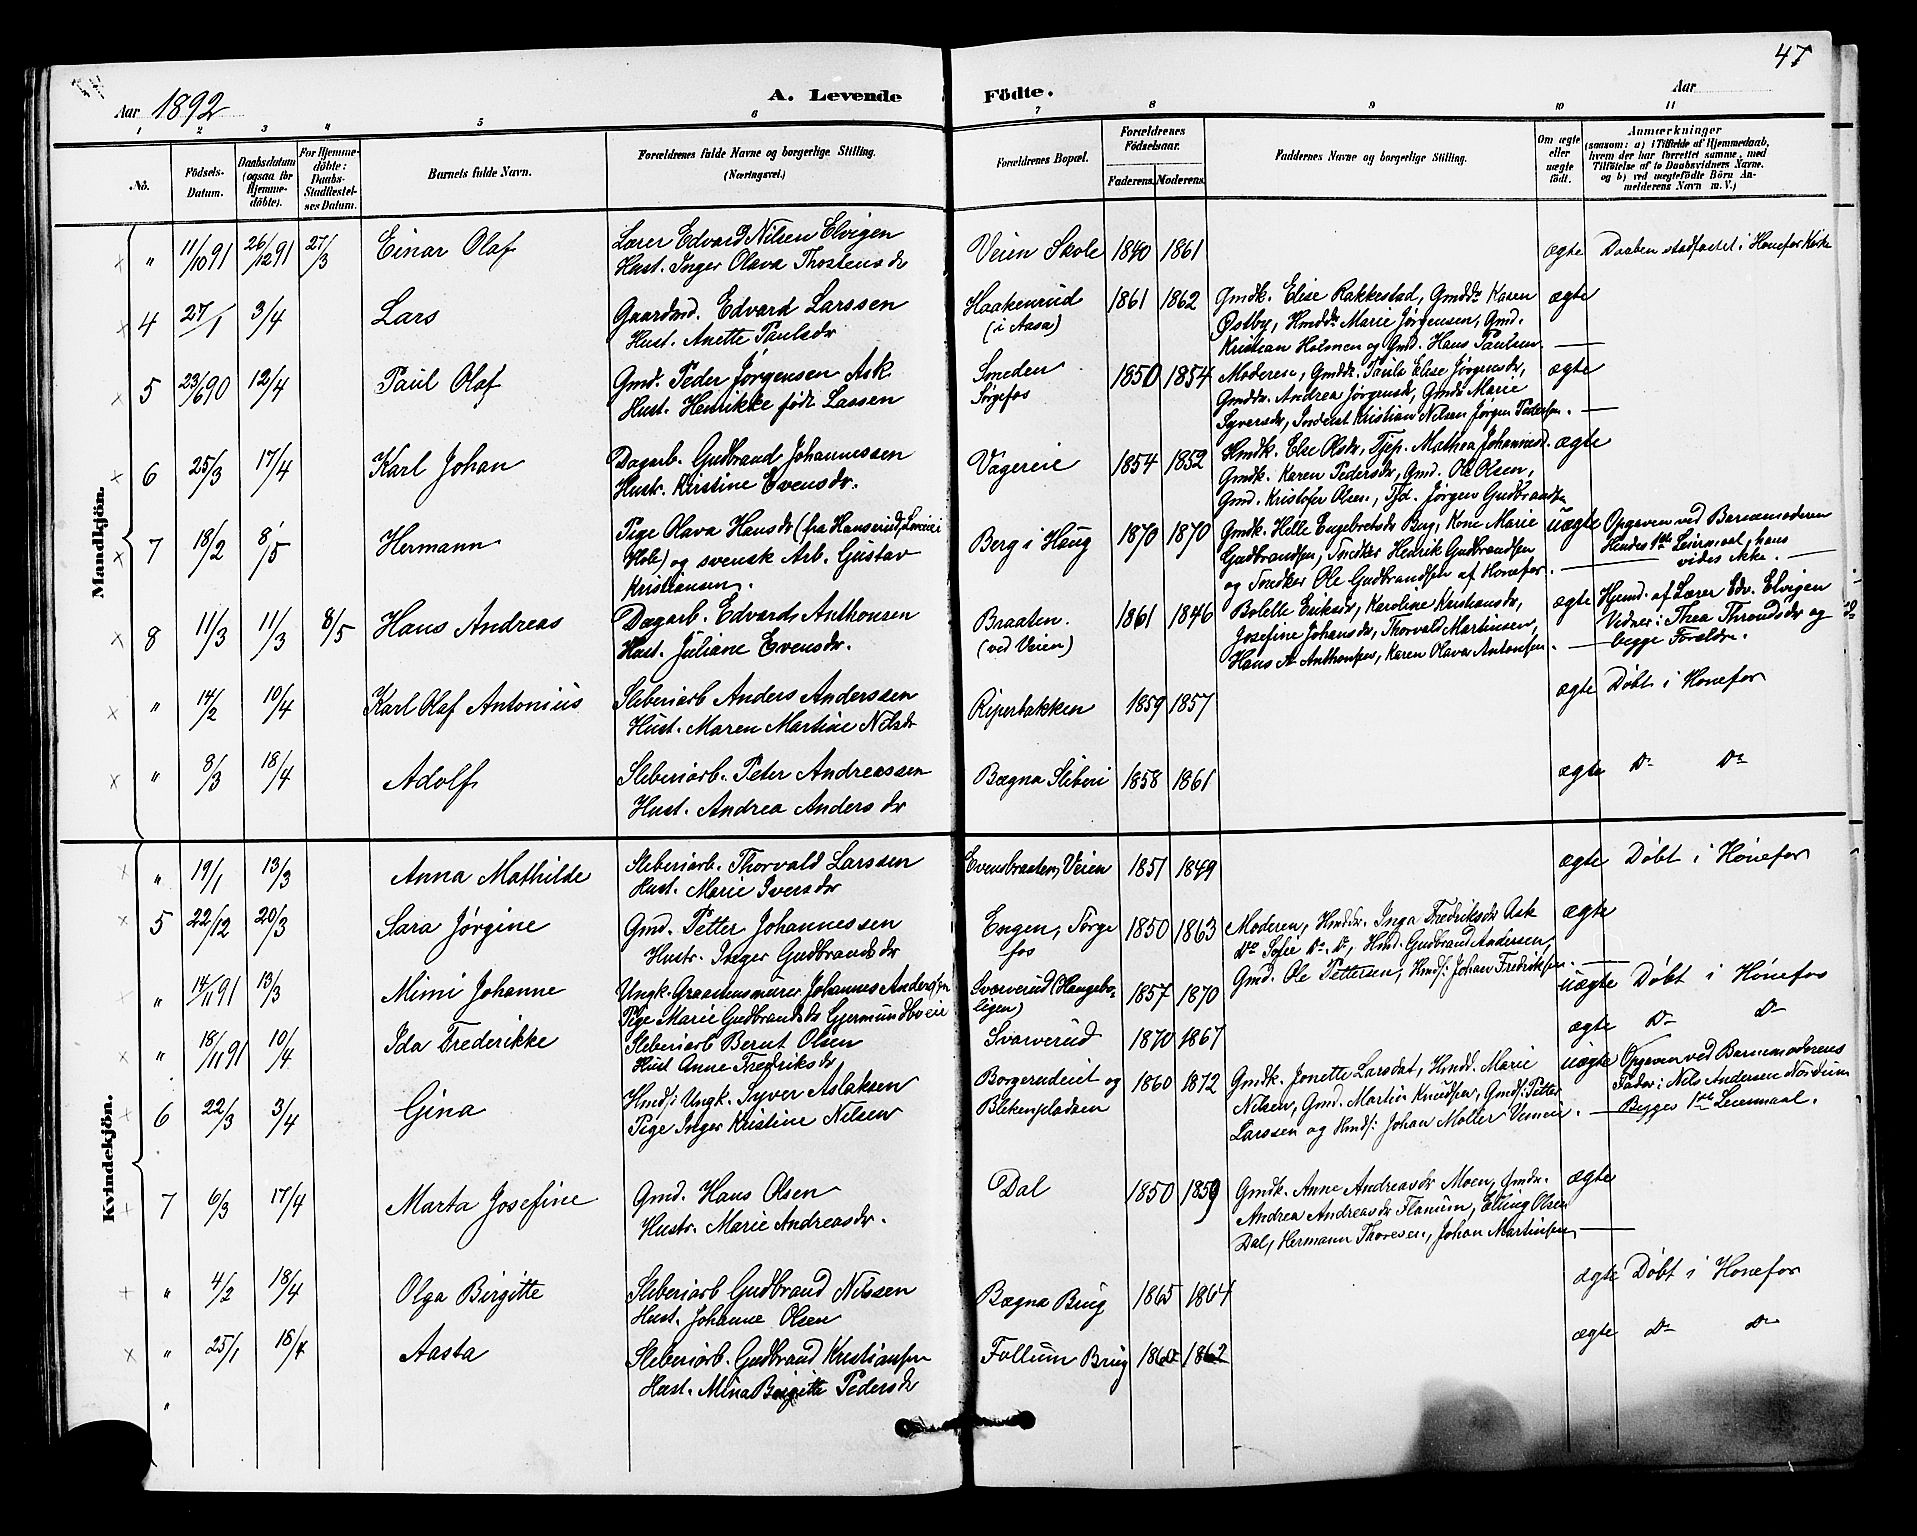 47
Aar 1892
A. Levende Födte.
Aar
1 2 3 4 5 6 7 8 9 10 11
No.
Födsels-Datum.
Daabsdatum (ogsaa for Hjemme-döbte).
For Hjemme-döbte: Daabs-Stadfæstel-ses Datum.
Barnets fulde Navn.
Forældrenes fulde Navne og borgerlige Stilling. (Næringsvei.)
Forældrenes Bopæl.
Forældrenes Födselsaar.
Faderens. Moderens.
Faddernes Navne og borgerlige Stilling.
Om ægte eller uægte födt.
Anmærkninger
(saasom: a) i Tilfælde af Hjemmedaab, hvem der har forrettet samme, med Tilföielse af to Daabsvidners Navne. og b) ved uægtefödte Börn Anmelderens Navn m. V.)
Mandkjön.
" 11/10 91 26/12 91 27/3 Einar Olaf Lærer Edvard Nilsen Elvigen Veien Skole 1840 1861 ægte Daaben stadfæstet i Hönefos Kirke
Hust. Inger Olava Thostensdr
4 27/1 3/4 Lars Gaardmd. Edvard Larssen Haakenrud 1861 1862 Gmdk. Elise Rakkestad, Gmddr Karen ægte
Hust. Anette Paulsdr (i Aasa) Østby, Hmddr Marie Jørgensen, Gmd.
Kristian Holmen og Gmd. Hans Paulsen.
5 23/6 90 12/4 Paul Olaf Gmd. Peder Jørgensen Ask Smeden 1850 1854 Moderen, Gmddr. Paula Elise Jørgensdr, ægte
Hust. Henrikke født Lassen Sørgefos Gmddr. Andrea Jørgensd, Gmdk Marie
Syversdr, Inderst Kristian Nilsen Jørgen Pedersen.
6 25/3 17/4 Karl Johan Dagarb. Gudbrand Johannessen Vagereie 1854 1852 Hmdk. Else Olsdr, Tjep. Mathea Johannesd. ægte
Hustr. Kirstine Evensdr. Gmdk. Karen Pedersdr, Gmd. Ole Olsen,
Gmd. Kristofer Olsen, Tjd. Jørgen Gudbrandsen
7 18/2 8/5 Hermann Pige Olava Hansdr (fra Hanserud, Loreie i Berg i Haug 1870 1870 Gmdk. Helle Engebretsdr Berg, Kone Marie uægte Opgaven ved Barnemoderen
Hole) og svensk Arb. Gustav Gudbrandsen, Snedker Henrik Gudbrandsen Hendes 1ste Leiermaal, hans
Kristiansen. og Snedker Ole Gudbrandsen af Hønefos. vides ikke.
8 11/3 11/3 8/5 Hans Andreas Dagarb. Edvard Anthonsen Braaten. 1861 1846 Bolelle Eriksdr, Karoline Kristiansdr, ægte Hjemd. af Lærer Edv. Elvigen
Hust. Juliane Evensdr. (ved Veien) Josefine Johansdr, Thorvald Martinsen, Vidner: Thea Throndsdr og
Hans A. Anthonsen, Karen Olava Antonsen. begge Forældre.
" 14/2 10/4 Karl Olaf Antonius Sliberiarb Anders Anderssen Riperbakken 1859 1857 ægte Døbt i Hønefos
Hust. Maren Martine Nilsdr
" 8/3 18/4 Adolf Sliberiarb. Peter Andreassen Bægna Sliberi 1858 1861 ægte Do Do
Hust. Andrea Andersdr
Kvindekjön.
" 19/1 13/3 Anna Mathilde Sliberiarb. Thorvald Larssen Evensbraaten, Veien 1851 1849 ægte Døbt i Hønefos
Hust. Marie Iversdr
5 22/12 20/3 Sara Jørgine Gmd. Petter Johannessen Engen, Sørge 1850 1863 Moderen, Hmddr. Inga Fredriksdr Ask ægte
Hustr. Inger Gudbrandsdr fos Do Sofie Do. Do, Hmd. Gudbrand Andersen,
Gmd. Ole Pettersen, Hmds: Johan Fredriksen.
" 14/11 91 13/3 Mimi Johanne Ungk. Graastensmurer Johannes Andersen Svarverud (Haugebo- 1857 1870 uægte Døbt i Hønefos
Pige Marie Gudbrandsdr Gjermundboeie ligen)
" 18/11 91 10/4 Ida Frederikke Sliberiarb Bernt Olsen Svarverud 1870 1867 ægte Do Do
Hust Anne Fredriksdr
6 22/3 3/4 Gina Hmds: Ungk. Syver Aslaksen Borgerudeiet og 1860 1872 Gmdk. Jonette Larsdat, Hmdd. Marie uægte Opgaven ved Barnemoderens
Pige Inger Kristine Nilsen Blekenpladsen Nilsen, Gmd. Martin Knudsen, Gmds: Petter Fader: Nils Andersen Norderum
Larssen og Hmds: Johan Møller Vemeie. Begges 1ste Leiermaal.
7 6/3 17/4 Marta Josefine Gmd. Hans Olsen Dal 1850 1859 Gmdk. Anne Andreasdr Moen, Gmdk. ægte
Hustr. Marie Andreasdr. Andrea Andreasdr Flanum, Elling Olsen
Dal, Hermann Thoresen, Johan Martinsen
" 4/2 18/4 Olga Birgitte Sliberiarb Gudbrand Nilssen Bægna Brug 1865 1864 ægte Døbt i Hønefos
Hust. Johanne Olsen
" 25/1 18/4 Aasta Sliberiarb. Gudbrand Kristiansen Follum Brug 1860 1862 ægte Do Do
Hust. Mina Birgitte Pedersdr
"